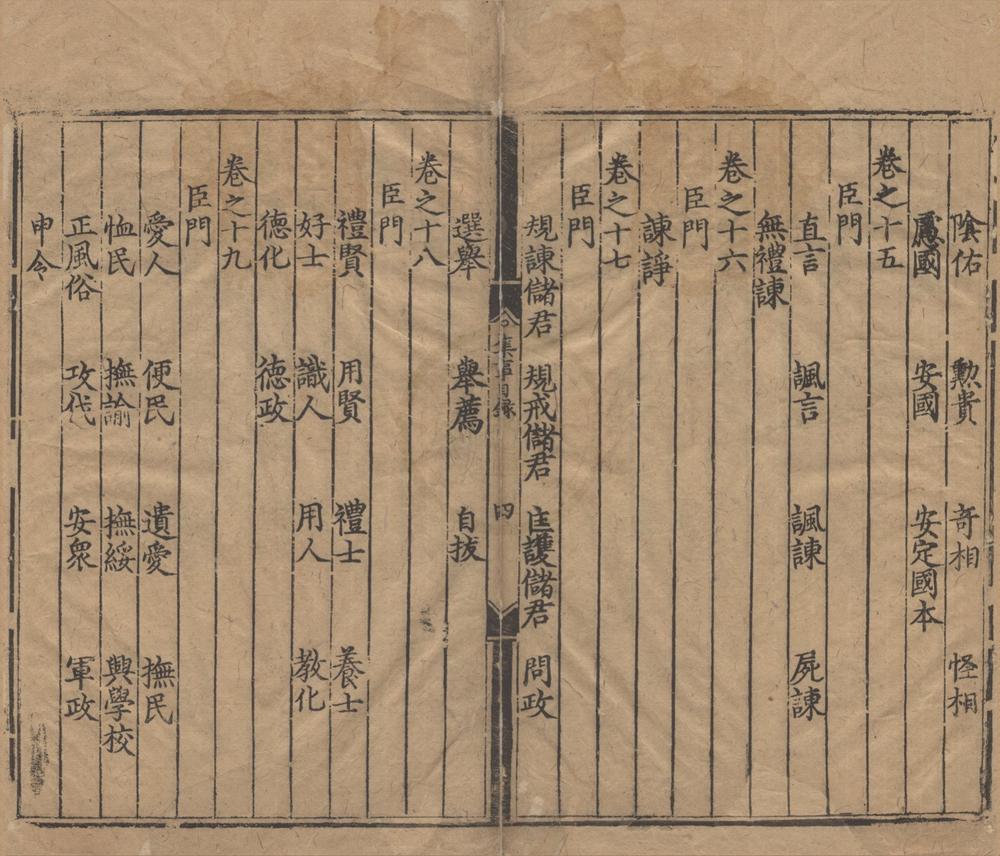 陰佑　勲貴　竒相　怪相
憂國　安國　安定國本
卷之十五
臣門
直言　諷言　諷諫　屍諫
無禮諫
卷之十六
臣門
諫諍
卷之十七
臣門
規諫儲君　規戒儲君　匡護儲君　問政
目録　四
選舉　舉薦　自拔
卷之十八
臣門
禮賢　用賢　禮士　養士
好士　識人　用人　教化
德化　德政
卷之十九
臣門
愛人　便民　遺愛　撫民
恤民　撫諭　撫綏　興學校
正風俗　攻伐　安衆　軍政
申令